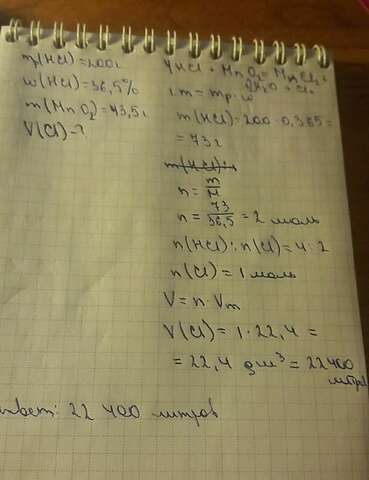 mр(HCl)=200г
w(HCl)=36,5%
m(MnO2)=43,5г
V(Cl)=?
4HCl + MnO2 = MnCl2 +
2H2O + Cl2
1. m = mр · w
m(HCl)=200 · 0,365 =
= 73г
m(HCl):
n = m/M
n = 73/36,5 = 2 моль
n(HCl):n(Cl)=4:2
n(Cl)=1моль
V = n · Vm
V(Cl)=1·22,4 =
= 22,4 дм³ = 22400
литров
ответ: 22 400 литров